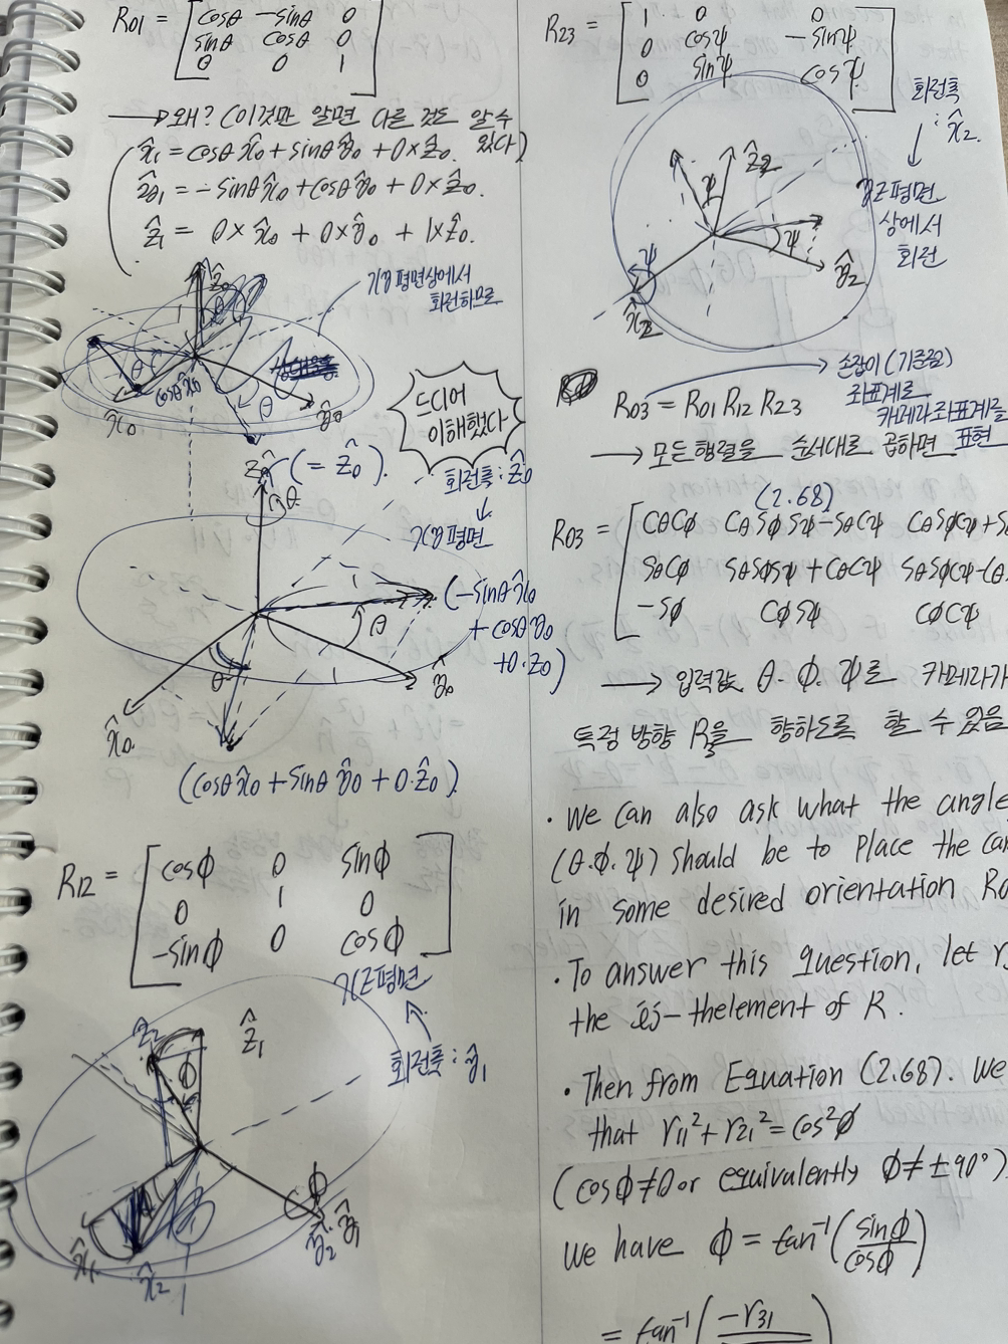 R01 = [ cosθ -sinθ 0
sinθ cosθ 0
0 0 1 ]
→ 왜? (이것만 알면 다른 것도 알 수 있다)
x̂1 = cosθ x̂0 + sinθ ŷ0 + 0×ẑ0.
= -sinθ x̂0 + cosθ ŷ0 + 0×ẑ0.
ẑ1 = 0×x̂0 + 0×ŷ0 + 1×ẑ0.
xy평면상에서
회전하므로
ẑ0
θ
θ
cosθ x̂0
θ
x̂0
ŷ0
드디어
이해했다
(= ẑ0).
회전축 : ẑ0
↓
xy평면
θ
(-sinθ x̂0
+ cosθ ŷ0
+0·ẑ0)
θ
θ
x̂0
ŷ0
(cosθ x̂0 + sinθ ŷ0 + 0·ẑ0).
R12 = [ cosϕ 0 sinϕ
0 1 0
-sinϕ 0 cosϕ ]
xz평면
↑
회전축 : ŷ1
ẑ2
ẑ1
ϕ
ϕ
x̂1
x̂2
ŷ2 ŷ1
R23 = [ 1 0 0
0 cosψ -sinψ
0 sinψ cosψ ]
회전축
: x̂2.
↓
yz평면
상에서
회전
ψ
ẑ2
ψ
ψ
ŷ2
x̂2
→ 손잡이 (기준점)
좌표계로
카메라 좌표계를
표현
R03 = R01 R12 R23
→ 모든 행렬을 순서대로 곱하면
(2.68)
R03 = [ CθCϕ CθSϕSψ-SθCψ CθSϕCψ+S
SθCϕ SθSϕSψ+CθCψ SθSϕCψ-Cθ
-Sϕ CϕSψ CϕCψ
→ 입력값 θ. ϕ. ψ로 카메라가
특정 방향 R을 향하도록 할 수 있음
· We can also ask what the angle
(θ.ϕ.ψ) should be to place the ca
in some desired orientation R0
· To answer this question, let r
the ij-thelement of R.
· Then from Equation (2.68). We
that r11² + r21² = cos²ϕ
(cosϕ≠0 or equivalently ϕ≠±90°)
we have ϕ = tan⁻¹(sinϕ/cosϕ)
= tan⁻¹(-r31